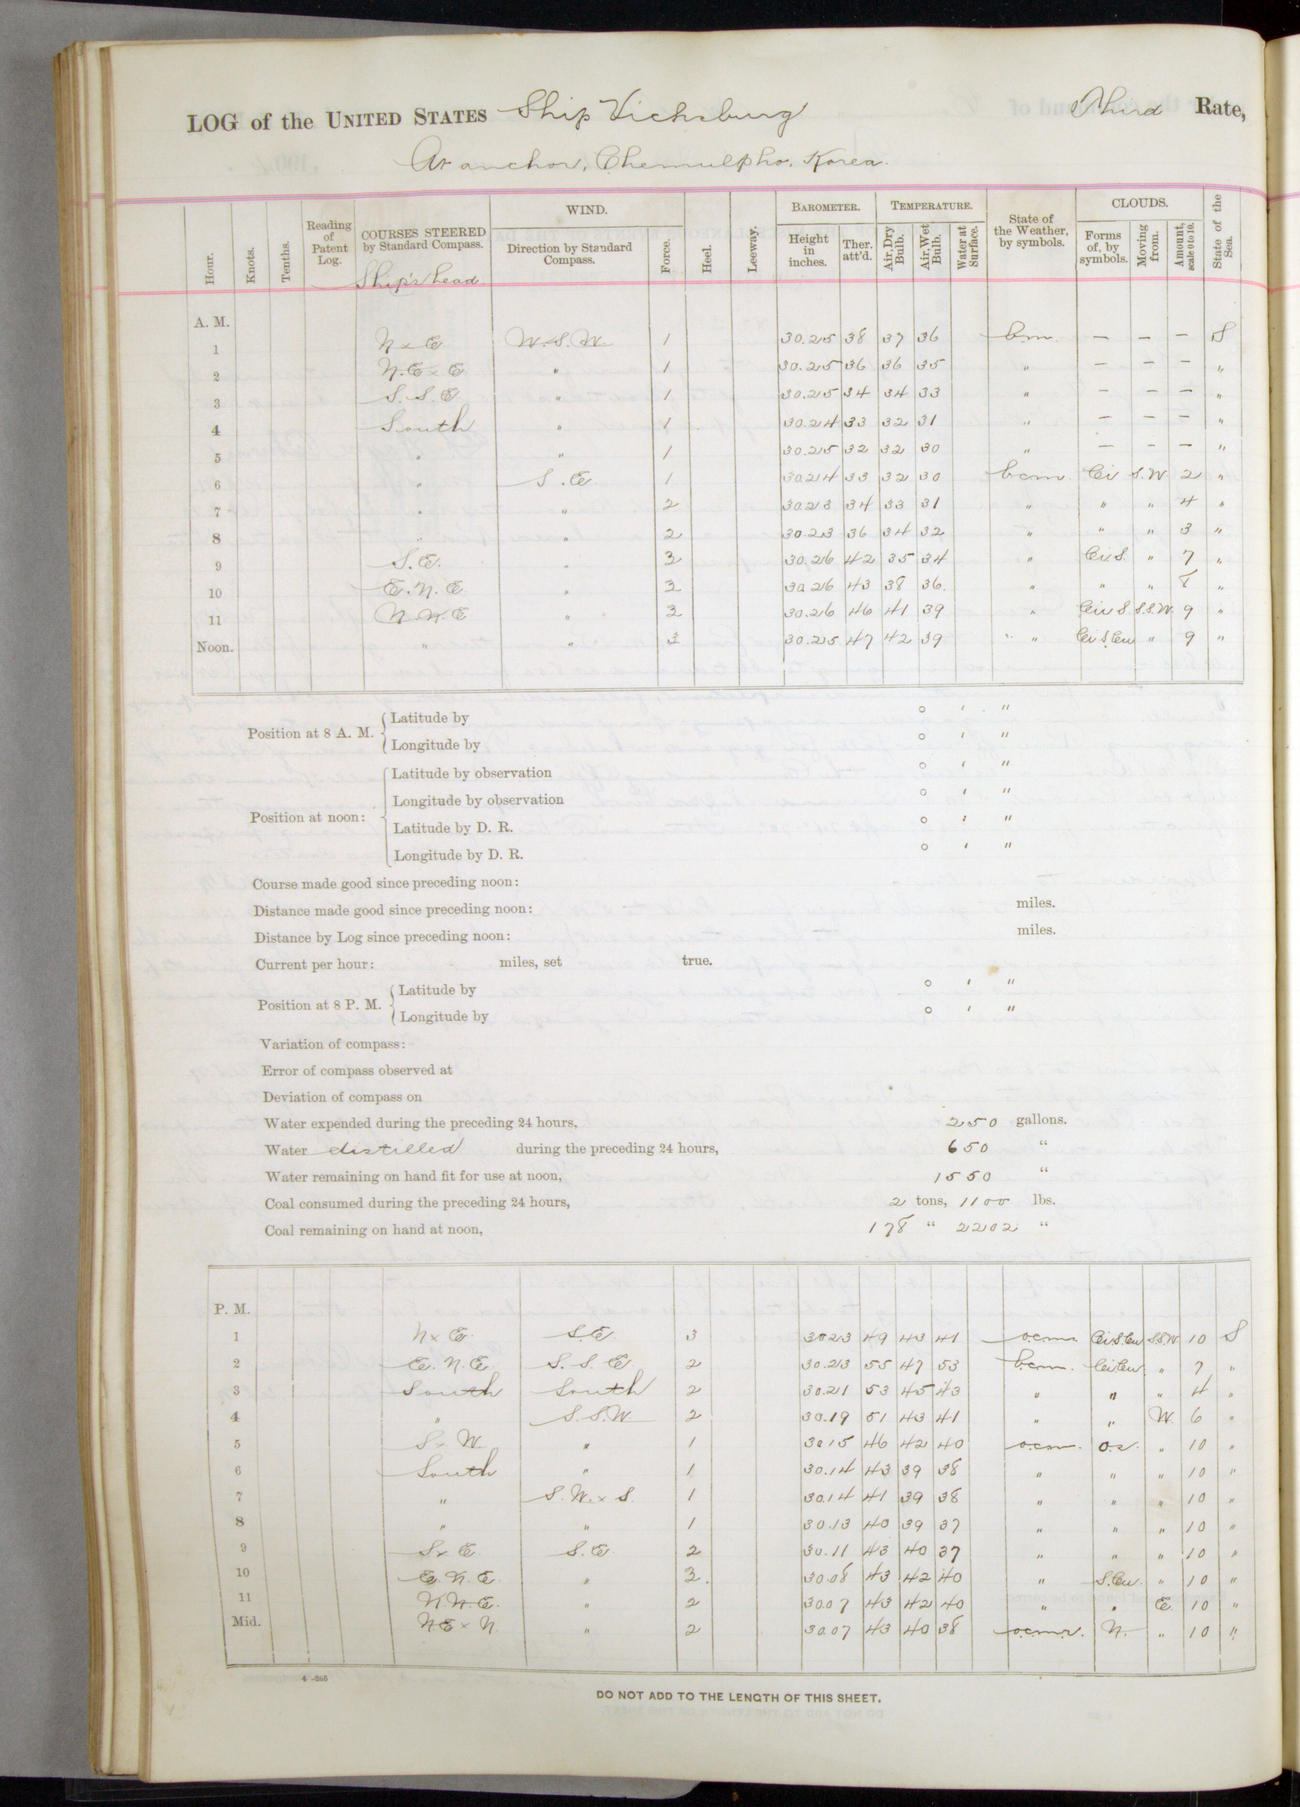 LOG of the UNITED STATES Ship Vicksburg Third Rate,
At anchor, Chemulpho, Korea.
Hour. Knots. Tenths. Reading of Patent Log. COURSES STEERED by Standard Compass. WIND. Direction by Standard Compass. Force. Heel. Leeway. BAROMETER. Height in inches. Ther. att'd. TEMPERATURE. Air, Dry Bulb. Air, Wet Bulb. Water at Surface. State of the Weather, by symbols. CLOUDS. Forms of, by symbols. Moving from. Amount, scale 0 to 10. State of the Sea.
Ship's head
A. M.
1 N x E W.S.W. 1 30.25 38 37 36 bm. — — — S
2 N.E x E " 1 30.25 36 36 35 " — — — "
3 S.S.E " 1 30.25 34 34 33 " — — — "
4 South " 1 30.24 33 32 31 " — — — "
5 " " 1 30.25 32 32 30 " — — — "
6 " S.E 1 30.24 33 32 30 bcm Ci S.W 2 "
7 " " 2 30.23 34 33 31 " " " 4 "
8 " " 2 30.23 36 34 32 " " " 3 "
9 S.E. " 3 30.26 42 35 34 " Ci S. " 7 "
10 E.N.E " 3 30.26 43 38 36. " " " 8 "
11 N.N.E " 3 30.26 46 41 39 " Cir S S.S.W. 9 "
Noon. " " 3 30.25 47 42 39 " Ci S.Cu " 9 "
Position at 8 A. M. Latitude by ° ' "
Longitude by ° ' "
Position at noon: Latitude by observation ° ' "
Longitude by observation ° ' "
Latitude by D. R. ° ' "
Longitude by D. R. ° ' "
Course made good since preceding noon:
Distance made good since preceding noon: miles.
Distance by Log since preceding noon: miles.
Current per hour: miles, set true.
Position at 8 P. M. Latitude by ° ' "
Longitude by ° ' "
Variation of compass:
Error of compass observed at
Deviation of compass on
Water expended during the preceding 24 hours, 250 gallons.
Water distilled during the preceding 24 hours, 650 "
Water remaining on hand fit for use at noon, 1550 "
Coal consumed during the preceding 24 hours, 2 tons, 1100 lbs.
Coal remaining on hand at noon, 178 " 2202 "
P. M.
1 N x E. S.E 3 30.23 49 43 41 ocm. Ci S.Cu S.S.W. 10 S
2 E.N.E S.S.E 2 30.23 55 47 53 bcm. Ci Cu " 7 "
3 South South 2 30.21 53 45 43 " " " 4 "
4 " S.S.W. 2 30.19 51 43 41 " " W. 6 "
5 S x W. " 1 30.15 46 42 40 ocm. " 10 "
6 South " 1 30.14 43 39 38 " " " 10 "
7 " S.W. x S. 1 30.14 41 39 38 " " " 10 "
8 " " 1 30.13 40 39 37 " " " 10 "
9 S x E S.E. 2 30.11 43 40 37 " " " 10 "
10 E.N.E. " 3. 30.08 43 42 40 " S.Cu. " 10 "
11 N.N.E. " 2 30.07 43 42 40 " " E. 10 "
Mid. NE x N. " 2 30.07 43 40 38 ocmr. N. " 10 "
4—265
DO NOT ADD TO THE LENGTH OF THIS SHEET.